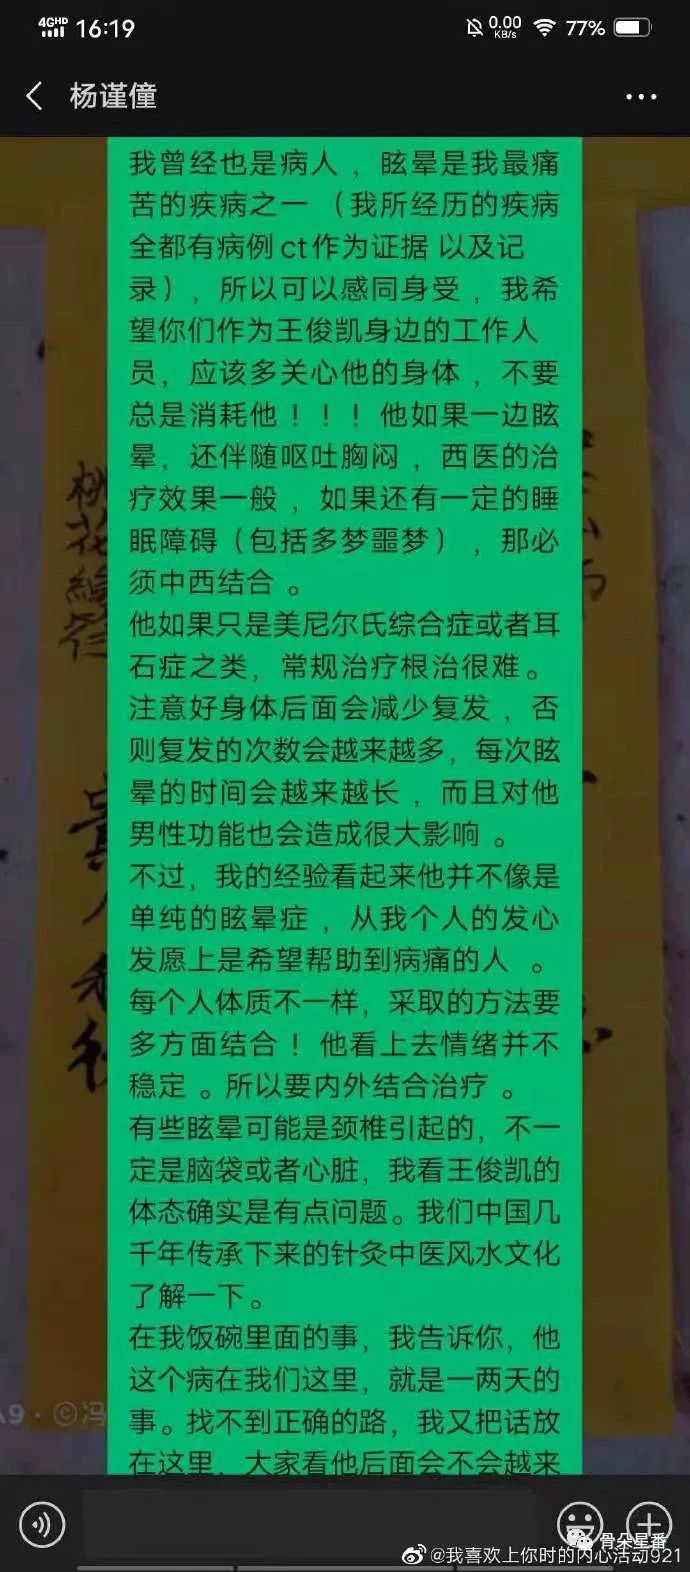 4GHD 16:19 0.00 KB/s 77%
杨谨僮
我曾经也是病人，眩晕是我最痛
苦的疾病之一（我所经历的疾病
全都有病例ct作为证据 以及记
录），所以可以感同身受，我希
望你们作为王俊凯身边的工作人
员，应该多关心他的身体，不要
总是消耗他！！！他如果一边眩
晕，还伴随呕吐胸闷，西医的治
疗效果一般，如果还有一定的睡
眠障碍（包括多梦噩梦），那必
须中西结合。
他如果只是美尼尔氏综合症或者耳
石症之类，常规治疗根治很难。
注意好身体后面会减少复发，否
则复发的次数会越来越多，每次眩
晕的时间会越来越长，而且对他
男性功能也会造成很大影响。
不过，我的经验看起来他并不像是
单纯的眩晕症，从我个人的发心
发愿上是希望帮助到病痛的人 。
每个人体质不一样，采取的方法要
多方面结合！他看上去情绪并不
稳定。所以要内外结合治疗。
有些眩晕可能是颈椎引起的，不一
定是脑袋或者心脏，我看王俊凯的
体态确实是有点问题。我们中国几
千年传承下来的针灸中医风水文化
了解一下。
在我饭碗里面的事，我告诉你，他
这个病在我们这里，就是一两天的
事。找不到正确的路，我又把话放
在这里，大家看他后面会不会越来
桃花
贵人
A9·©冯
骨朵星番
@我喜欢上你时的内心活动921